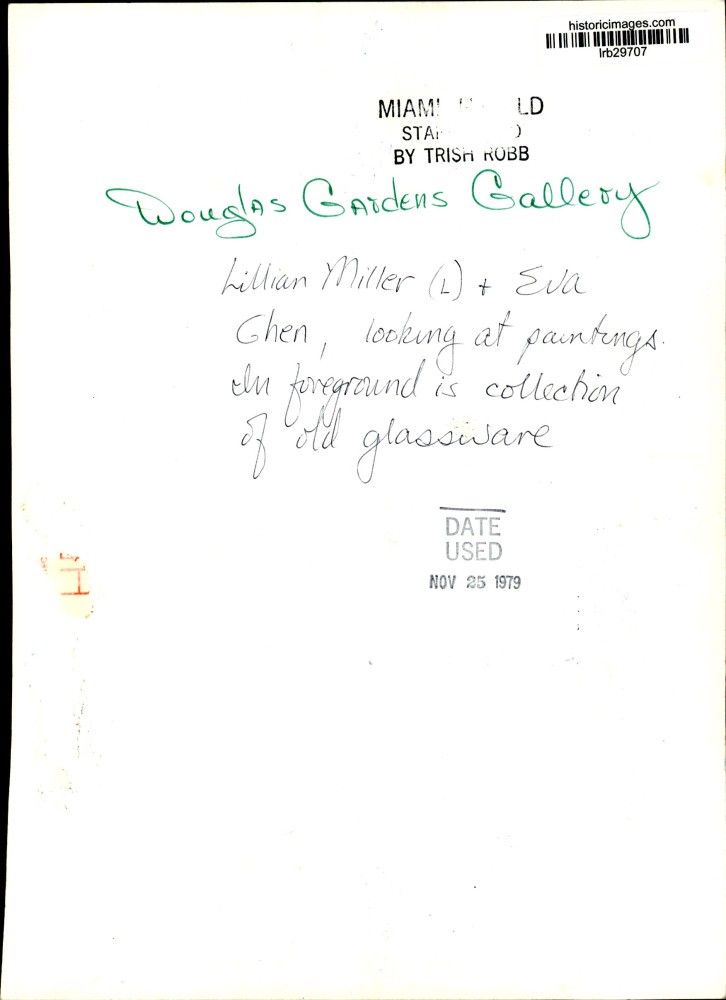 historicimages.com
lrb29707
MIAMI LD
STA )
BY TRISH ROBB
Douglas Gardens Gallery
Lillian Miller (L) + Eva
Ghen, looking at paintings.
In foreground is collection
of old glassware
DATE
USED
NOV 25 1979